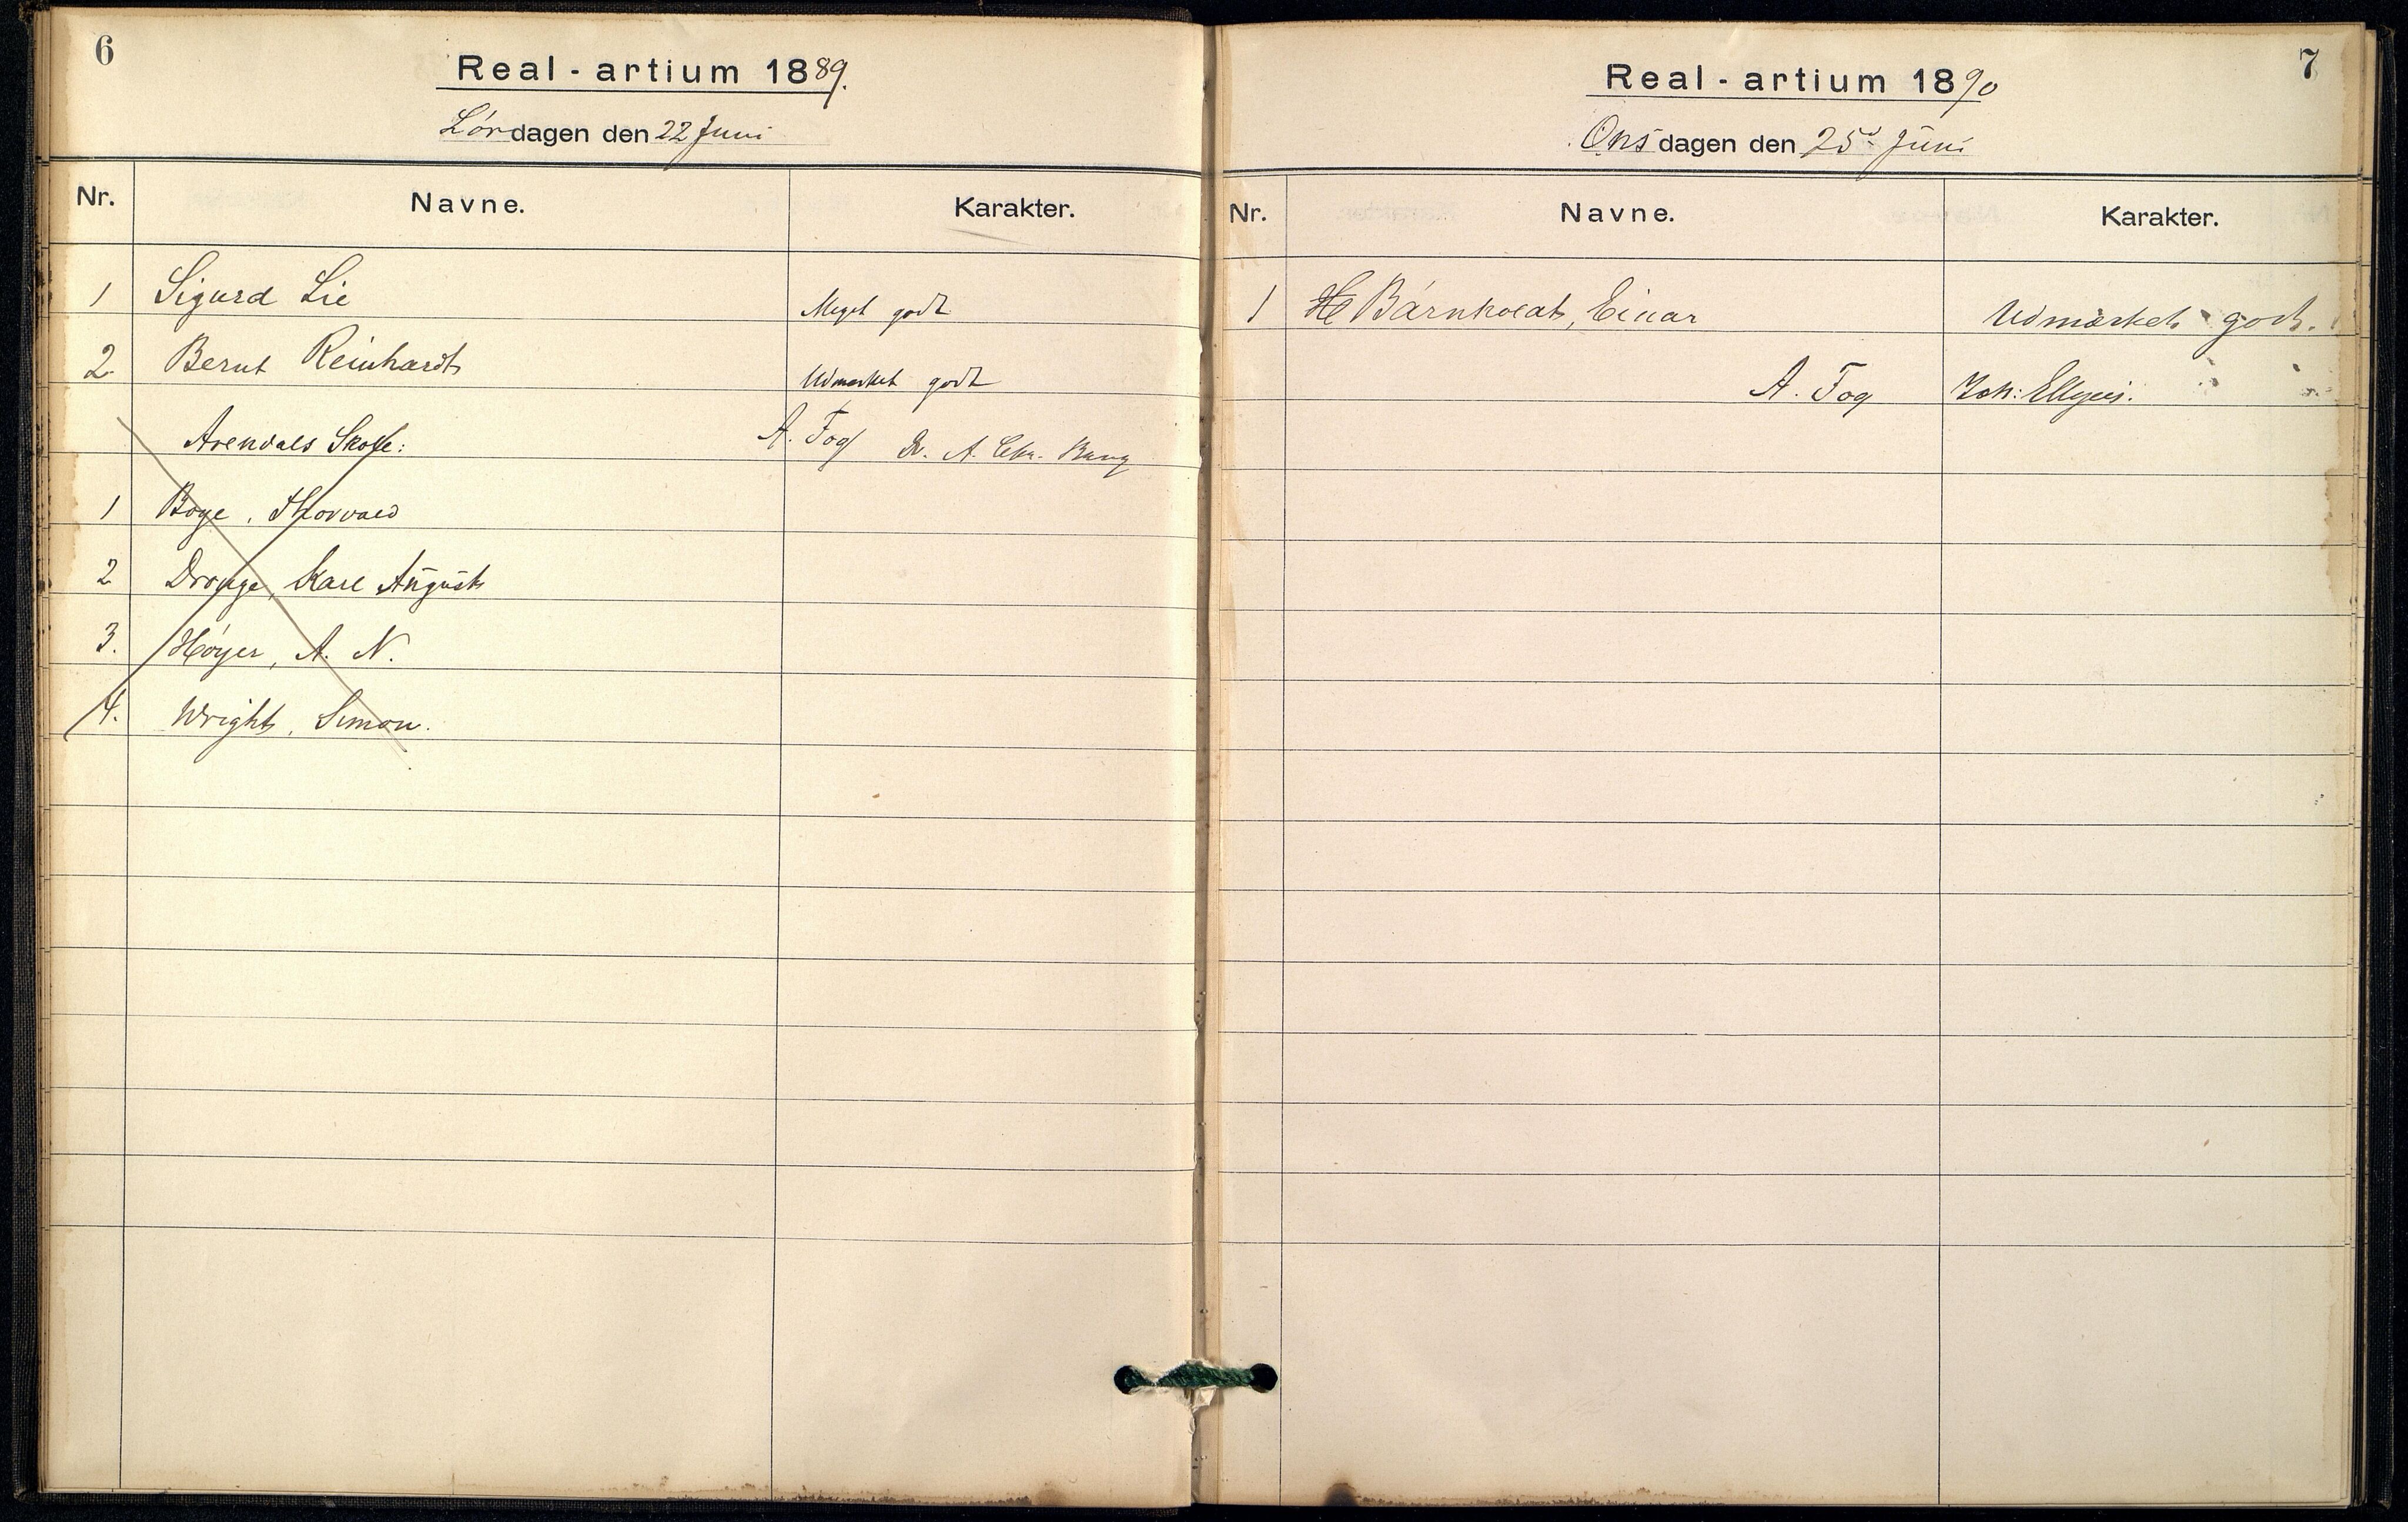 6
Real-artium 1889.
Lørdagen den 22 Juni
Nr. Navne. Karakter.
1 Sigurd Lie Meget godt
2 Bernt Reinhardt Udmærket godt
Arendals Skole: A. Fog Dr. A. Chr. Bang
1 Boye, Thorvald
2 Drange, Karl August
3. Høyer, A. N.
4. Wright, Simon.
7
Real-artium 1890
Onsdagen den 25d Juni
Nr. Navne. Karakter.
1 Barnholdt, Einar Udmærket godt.
A. Fog Joh: